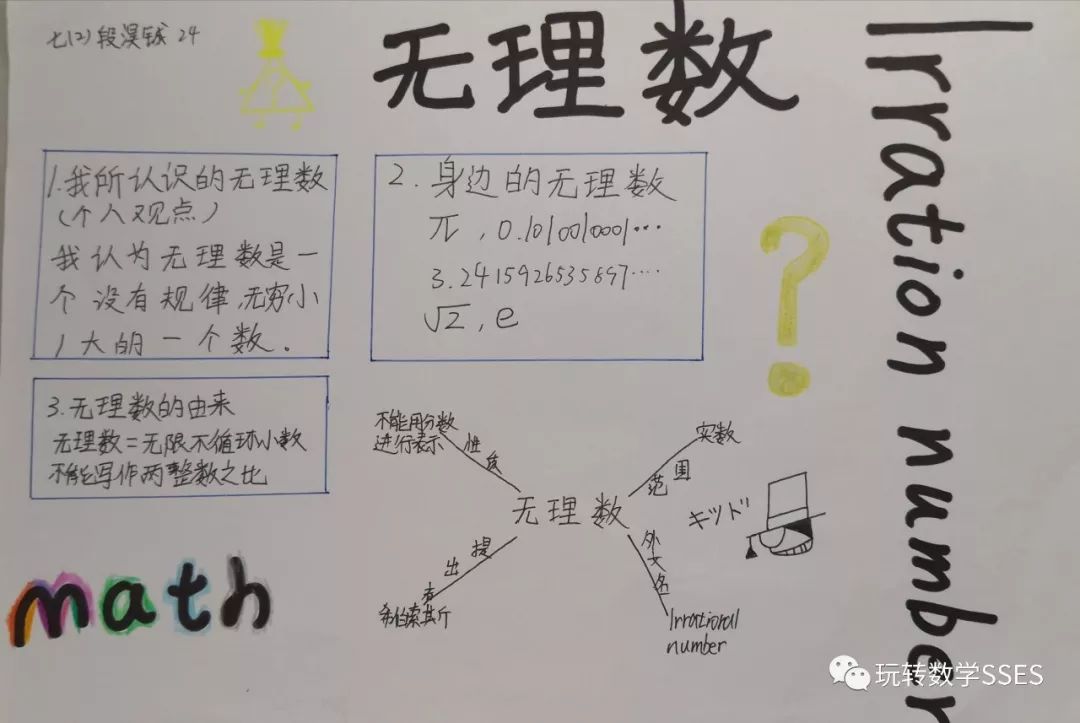 七(2) 段淏钺 24
无理数
Irration number
1.我所认识的无理数
(个人观点)
我认为无理数是一
个没有规律,无穷小
/大的一个数.
2.身边的无理数
π,0.1010010001…
3.2415926535897…
√2,e
3.无理数的由来
无理数=无限不循环小数
不能写作两整数之比
不能用分数
进行表示
性质
实数
范围
无理数
キッド
提出者
希伯索其斤
外文名
Irrational
number
math
玩转数学SSES